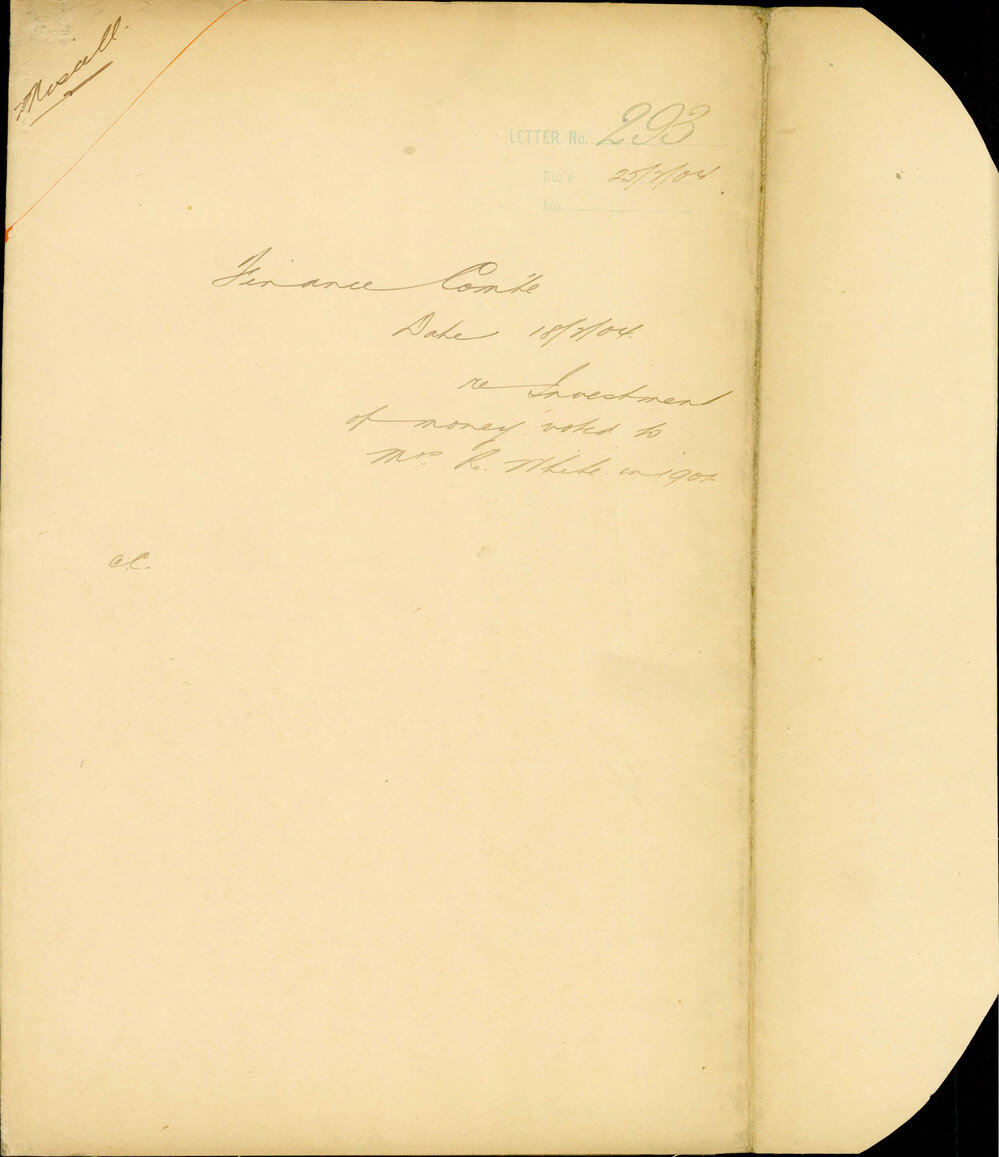 Miscell.
LETTER No. 293
Rec'd 25/2/04.
Ack.
Finance Com'te
Date 18/2/04.
re Investment
of money voted to
Mrs. R. White in
C.C.